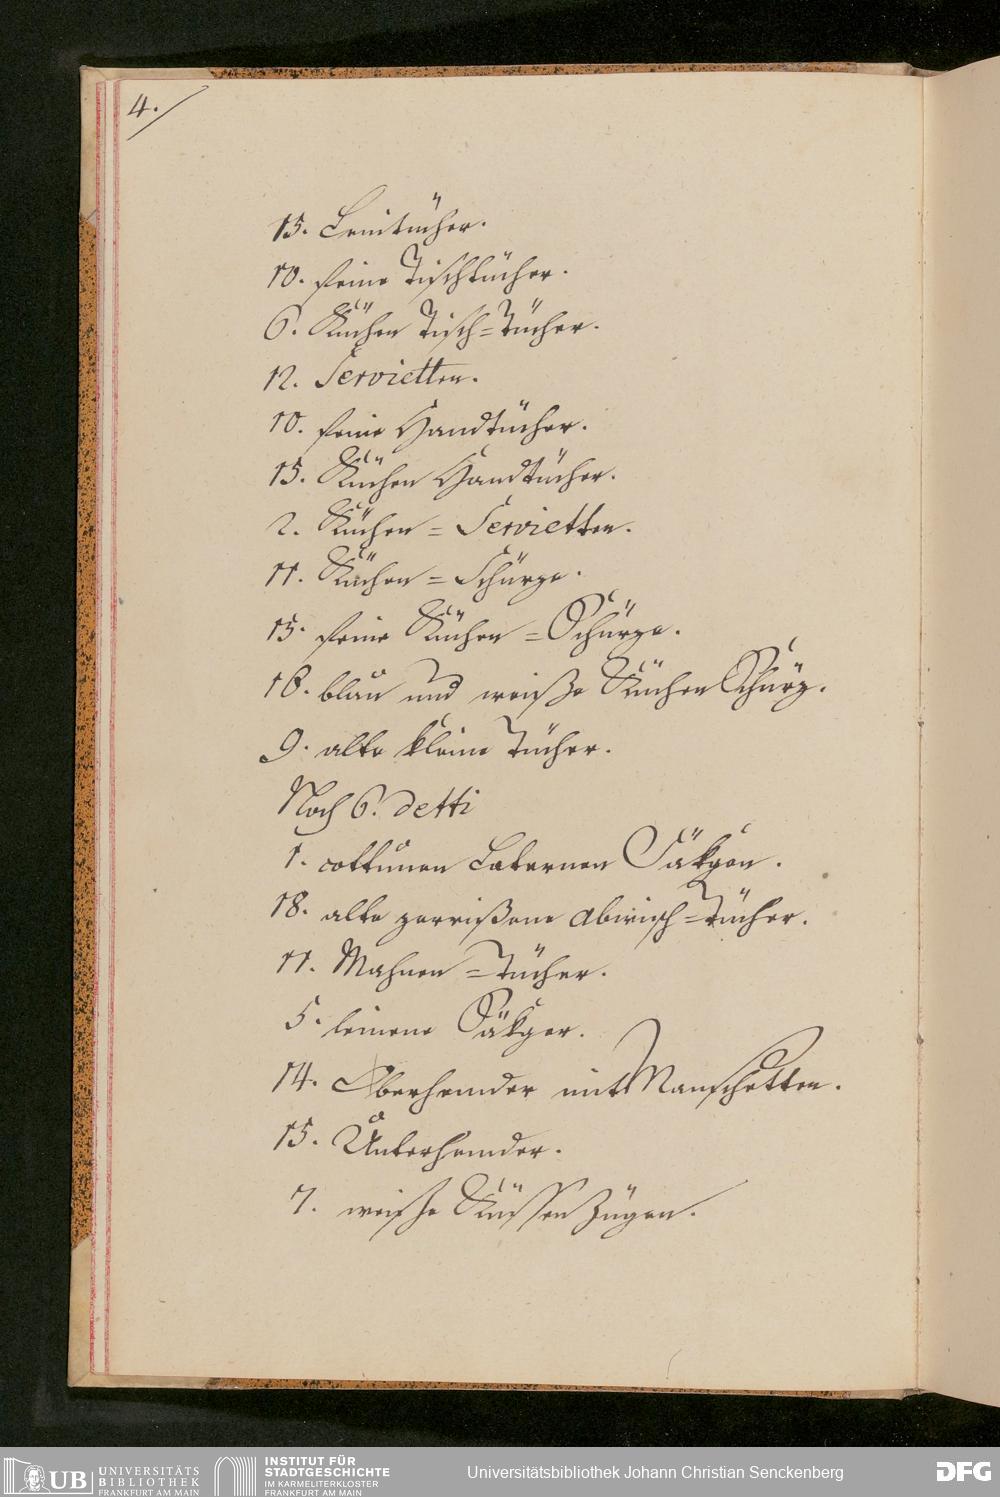 4./
15. Leintücher.
10. feine Tischtücher.
6. Küchen Tisch=Tücher.
12. Servietten.
10. feine Handtücher.
15. Küchen Handtücher.
2. Küchen=Servietten.
11. Küchen=Schürze.
15. feine Küchen=Schürze.
16. blau und weiße Küchen Schürz.
9. alte kleine Tücher.
Noch 6. detti
1. cottunen Laternen Säkgen.
18. alte zerrißene Abwisch=Tücher.
11. Mahnen=Tücher.
5. leinene Säkger.
14. Oberhemder mit Manschetten.
15. Unterhemder.
7. weisse Küssen Zügen.
UB UNIVERSITÄTS
BIBLIOTHEK
FRANKFURT AM MAIN
INSTITUT FÜR
STADTGESCHICHTE
IM KARMELITERKLOSTER
FRANKFURT AM MAIN
Universitätsbibliothek Johann Christian Senckenberg
DFG